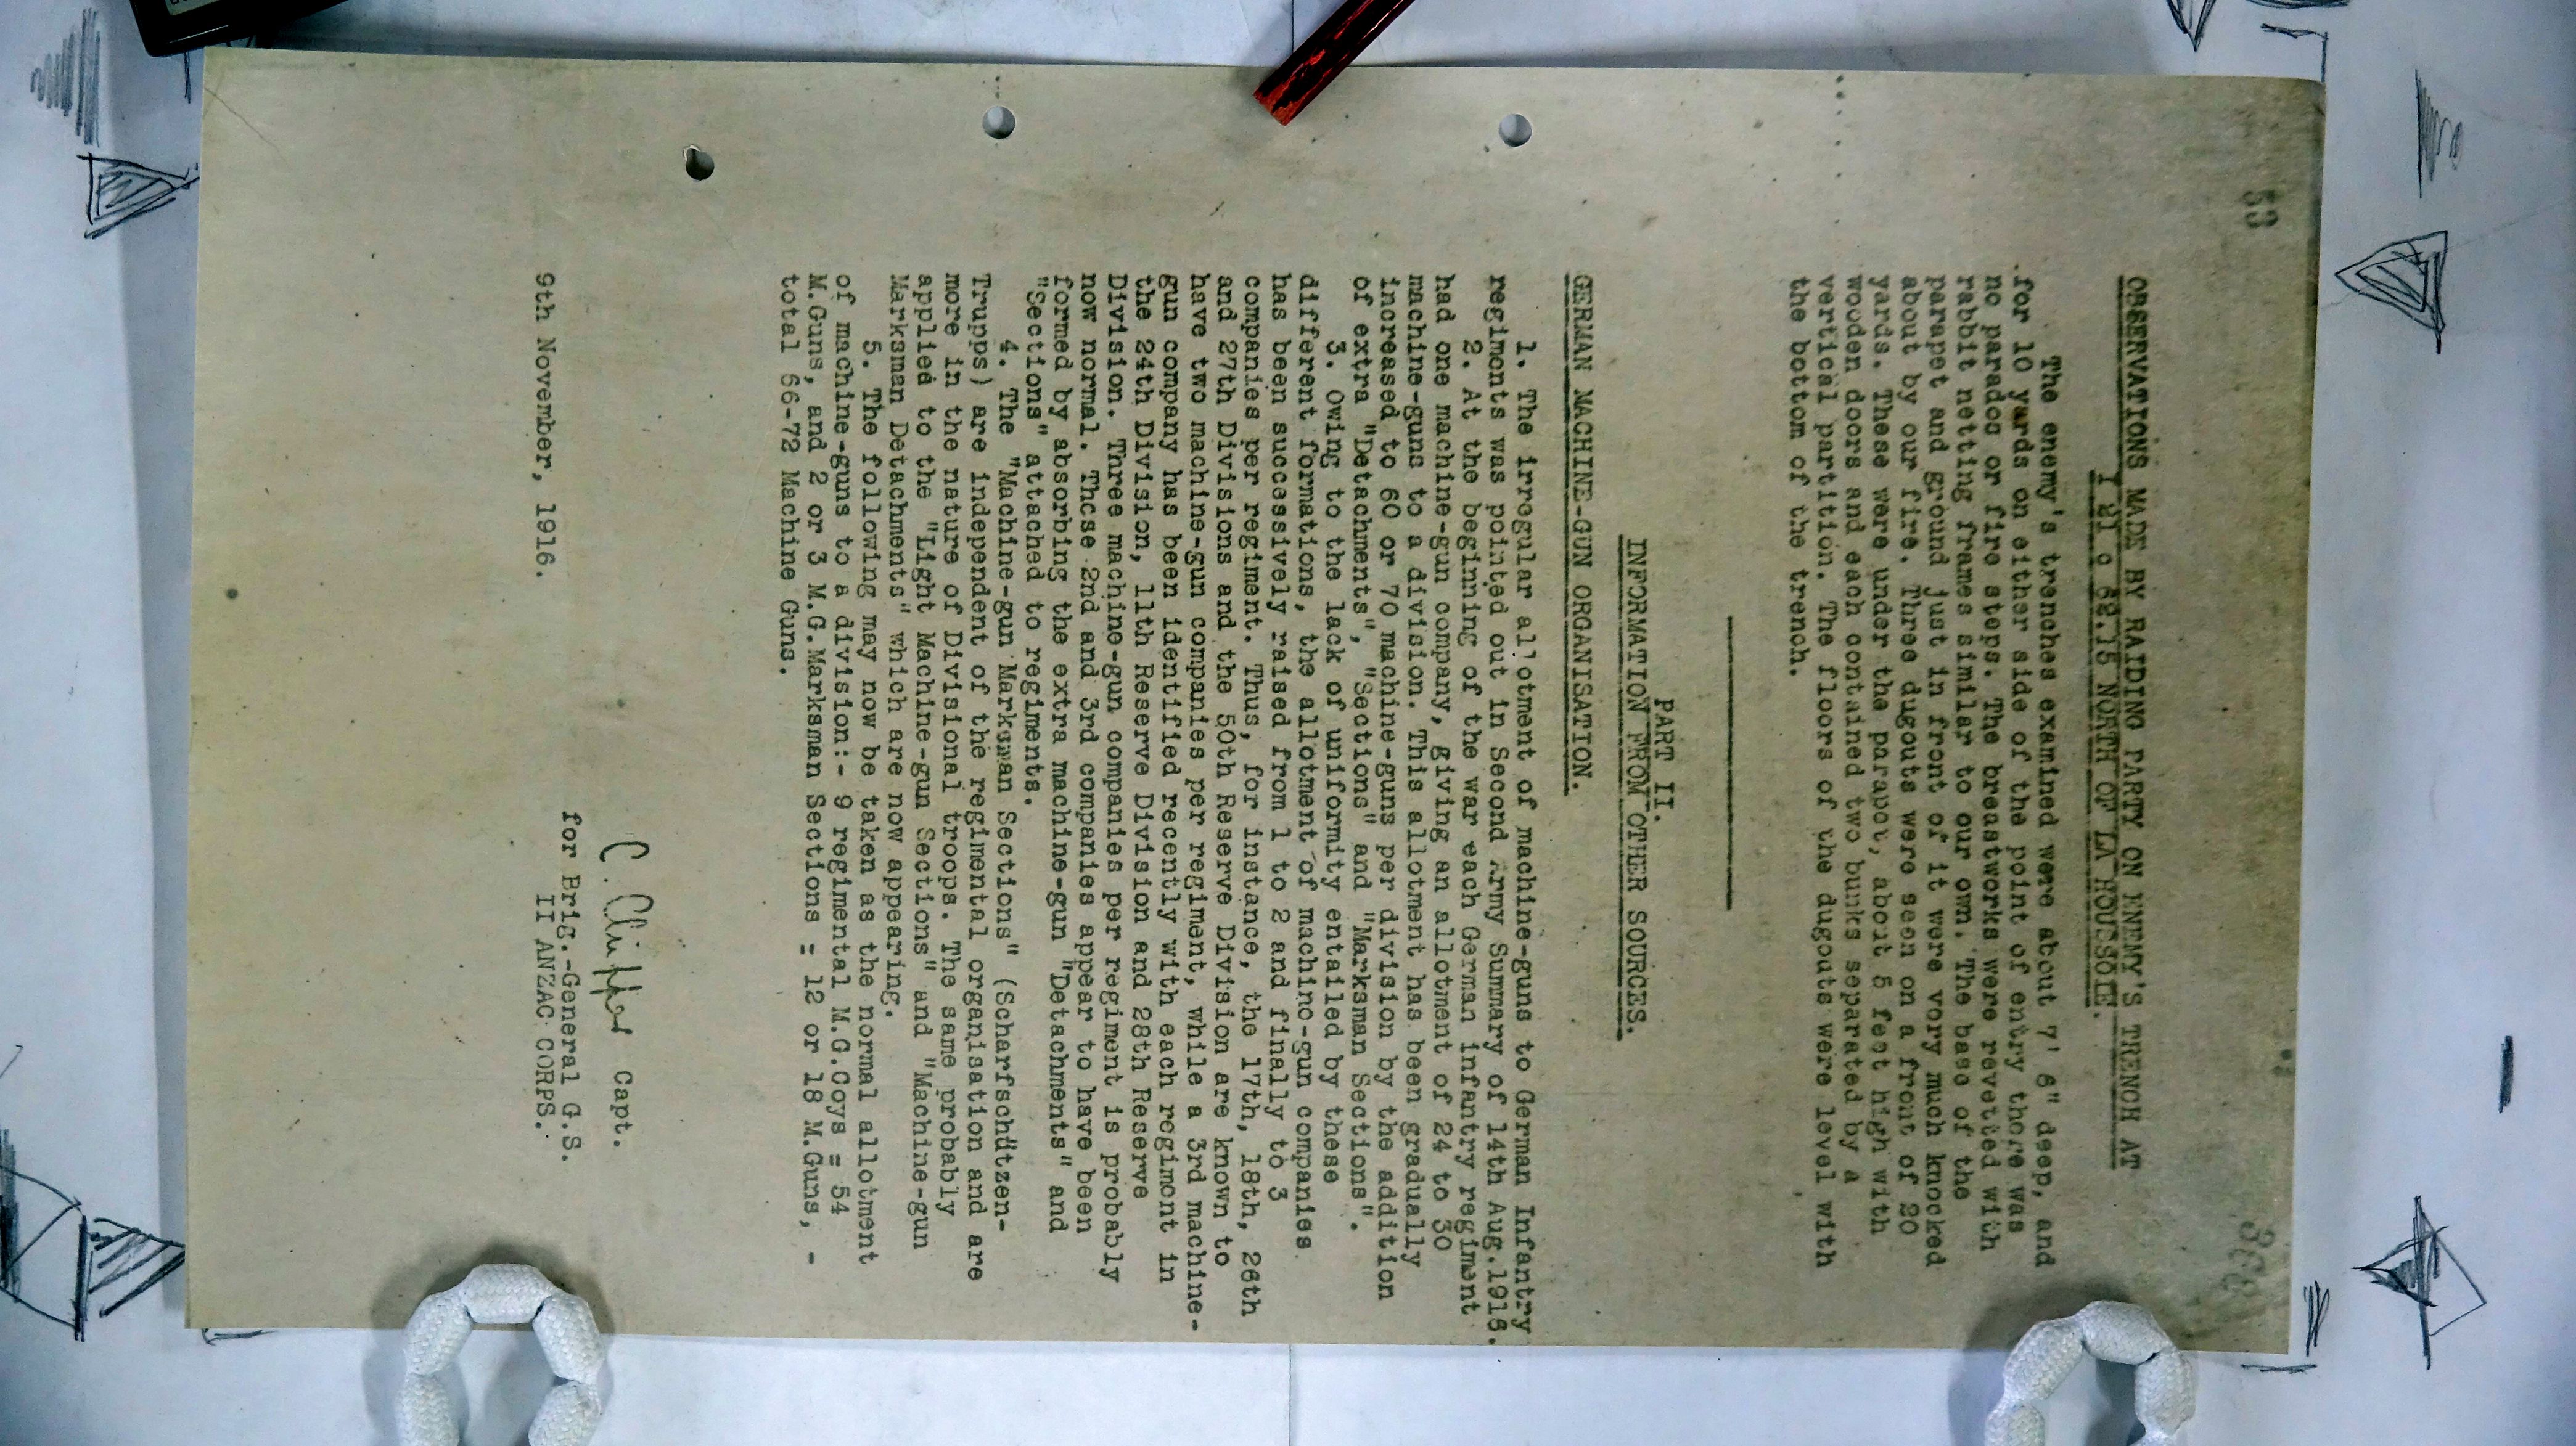 53
OBSERVATIONS MADE BY RAIDING PARTY ON ENEMY'S TRENCH AT
NORTH OF LA HOUSSOIE.
The enemy's trenches examined were about 7' 6" deep, and
for 10 yards on either side of the point of entry there was
no parados or fire steps. The breastworks were revetted with
rabbit netting frames similar to our own. The base of the
parapet and ground just in front of it were very much knocked
about by our fire. Three dugouts were seen on a front of 20
yards. These were under the parapet, about 5 feet high with
wooden doors and each contained two bunks separated by a
vertical partition. The floors of the dugouts were level with
the bottom of the trench.
PART II.
INFORMATION FROM OTHER SOURCES.
GERMAN MACHINE-GUN ORGANISATION.
1. The irregular allotment of machine-guns to German Infantry
regiments was pointed out in Second Army Summary of 14th Aug.1916.
2. At the beginning of the war each German infantry regiment
had one machine-gun company, giving an allotment of 24 to 30
machine-guns to a division. This allotment has been gradually
increased to 60 or 70 machine-guns per division by the addition
of extra "Detachments", "Sections" and "Marksman Sections".
3. Owing to the lack of uniformity entailed by these
different formations, the allotment of machine-gun companies
has been successively raised from 1 to 2 and finally to 3
companies per regiment. Thus, for instance, the 17th, 18th, 26th
and 27th Divisions and the 50th Reserve Division are known to
have two machine-gun companies per regiment, while a 3rd machine-
gun company has been identified recently with each regiment in
the 24th Division, 11th Reserve Division and 28th Reserve
Division. Three machine-gun companies per regiment is probably
now normal. These 2nd and 3rd companies appear to have been
formed by absorbing the extra machine-gun "Detachments" and
"Sections" attached to regiments.
4. The "Machine-gun Marksman Sections" (Scharfschützen-
Trupps) are independent of the regimental organisation and are
more in the nature of Divisional troops. The same probably
applied to the "Light Machine-gun Sections" and "Machine-gun
Marksman Detachments" which are now appearing.
5. The following may now be taken as the normal allotment
of machine-guns to a division:- 9 regimental M.G.Coys = 54
M.Guns, and 2 or 3 M.G.Marksman Sections = 12 or 18 M.Guns, -
total 66-72 Machine Guns.
Capt.
for Brig.-General G.S.
9th November, 1916. II ANZAC CORPS.